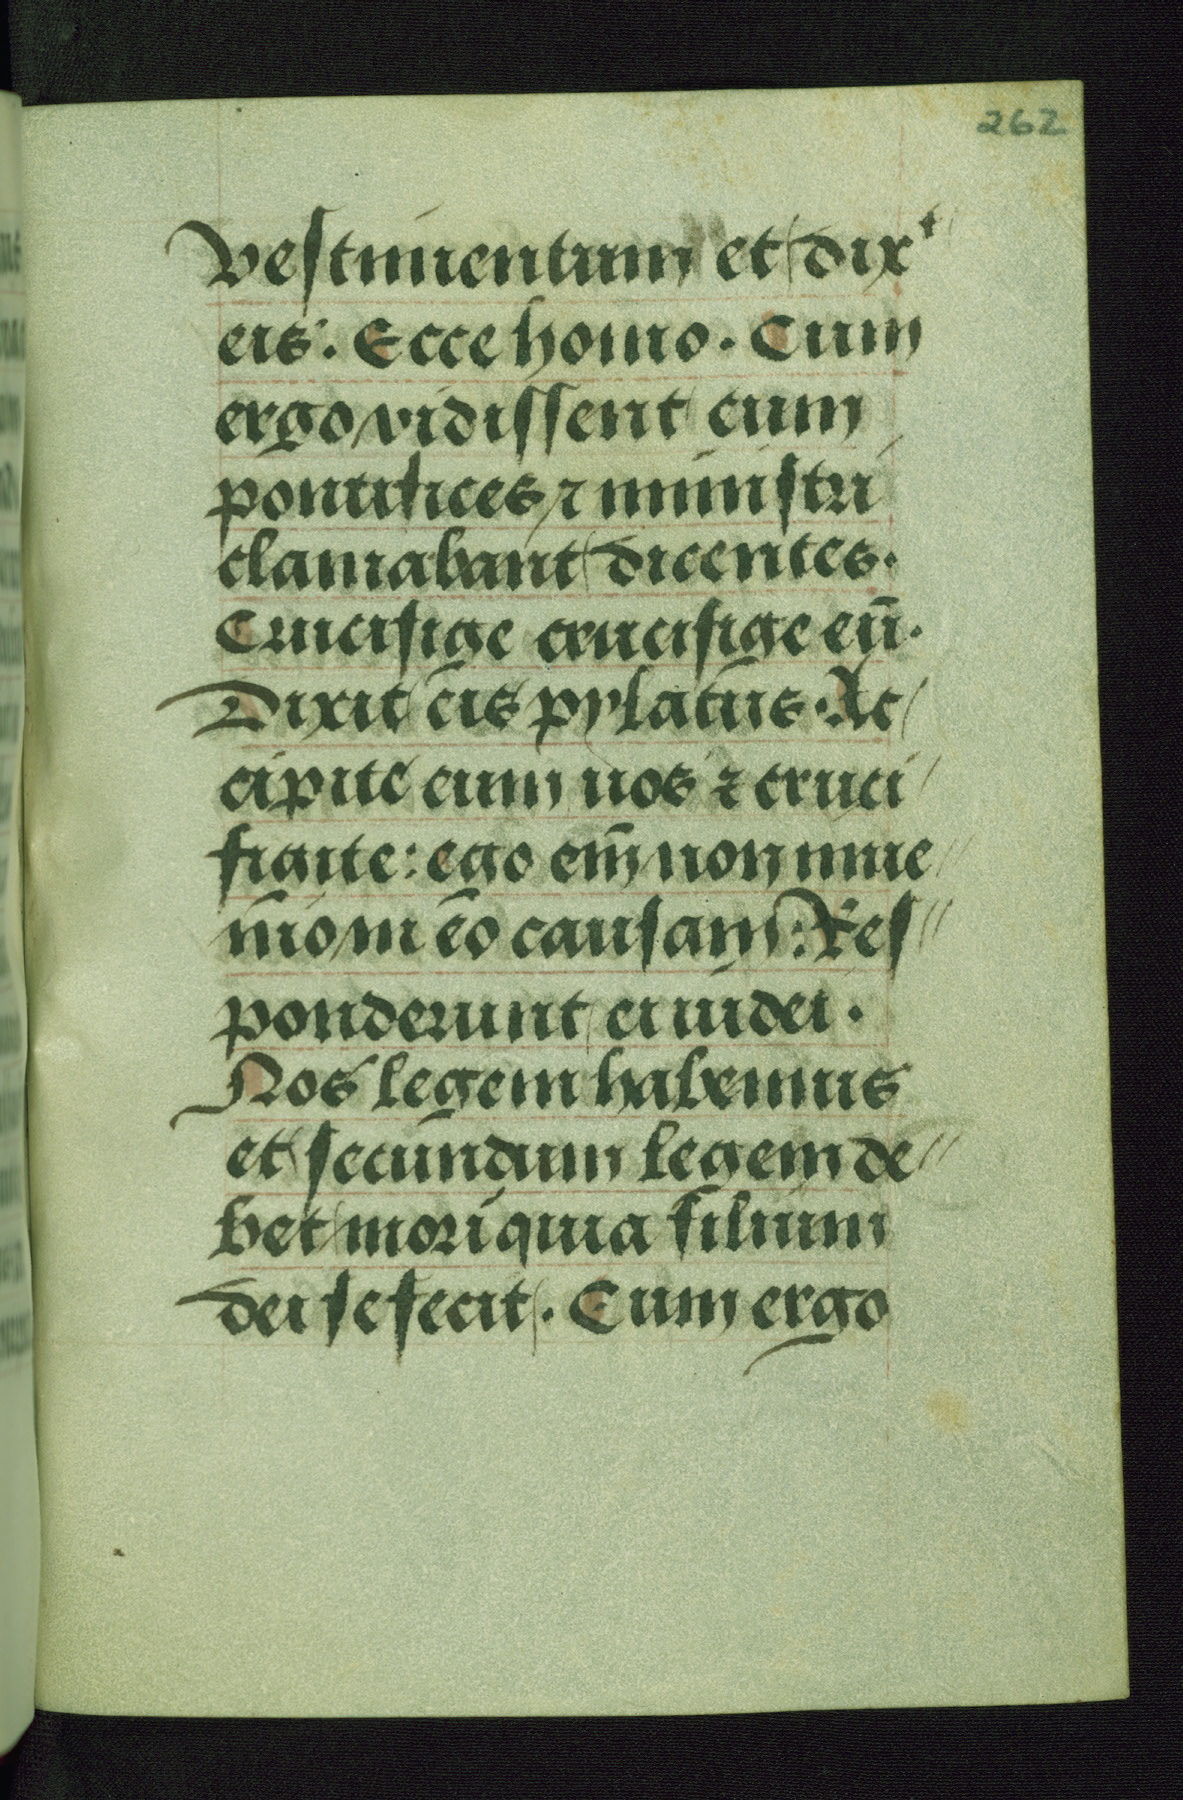 262
vestimentum et dixᵗ
eis: Ecce homo. Cum
ergo vidissent eum
pontifices ⁊ ministri
clamabant dicentes.
Crucifige crucifige eū.
Dixit eis pylatus. Ac
cipite eum uos ⁊ cruci
figite: ego em̄ non inue
nio in eo causam: Res
ponderunt ei iudei.
Nos legem habemus
et secundum legem de
bet mori quia filium
dei se fecit. Cum ergo